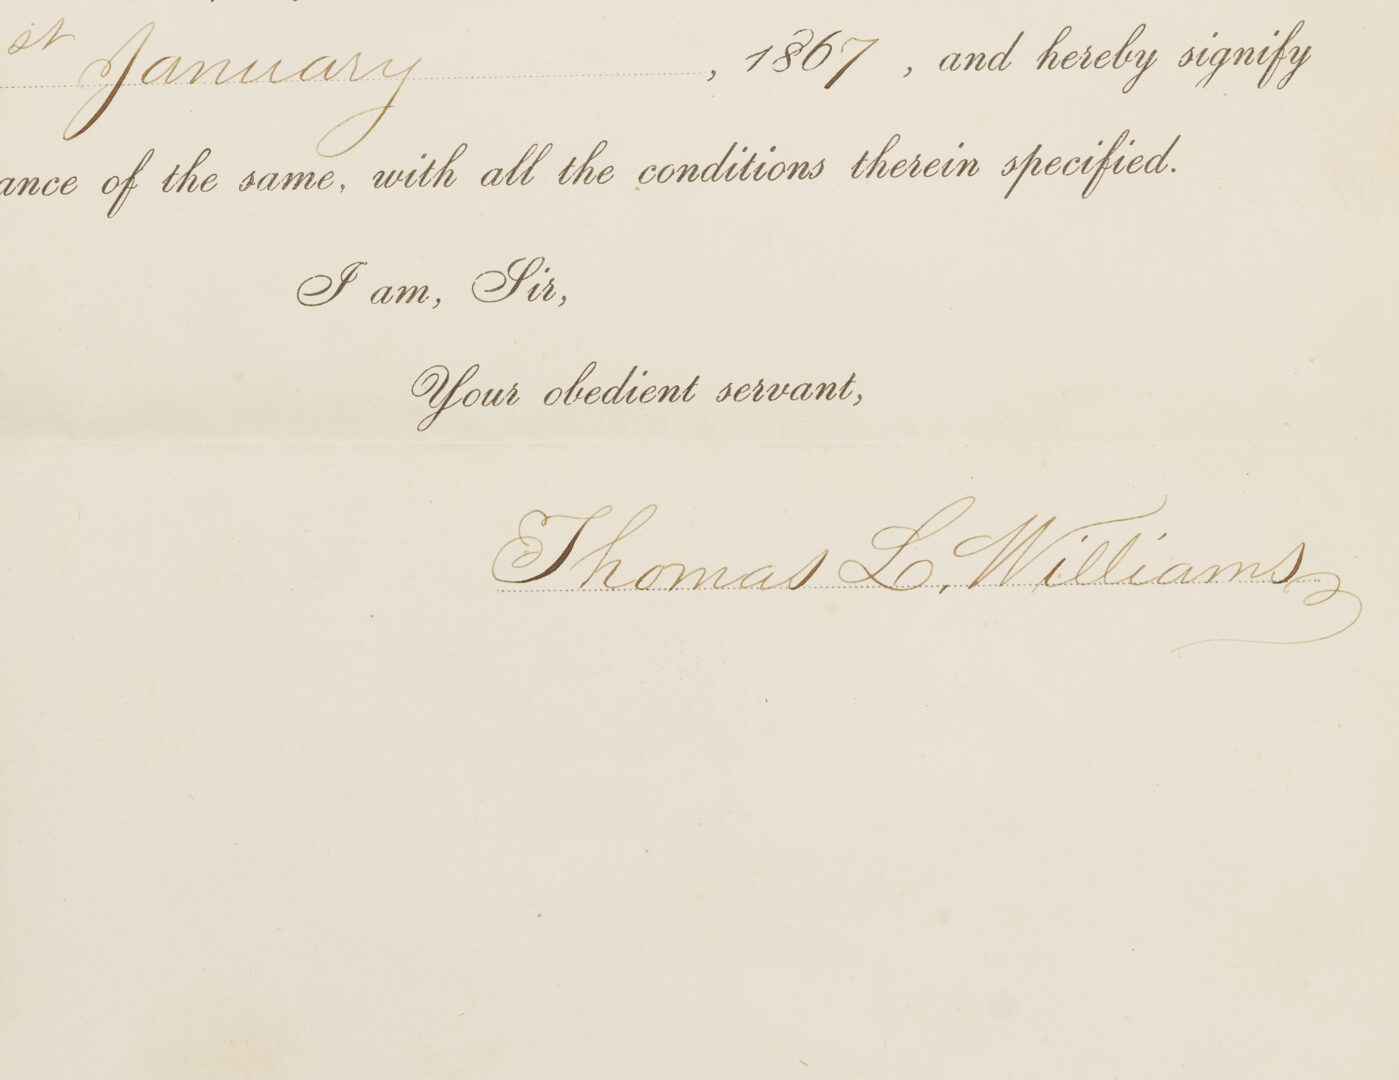 st January , 1867 , and hereby signify
ance of the same, with all the conditions therein specified.
I am, Sir,
Your obedient servant,
Thomas L. Williams